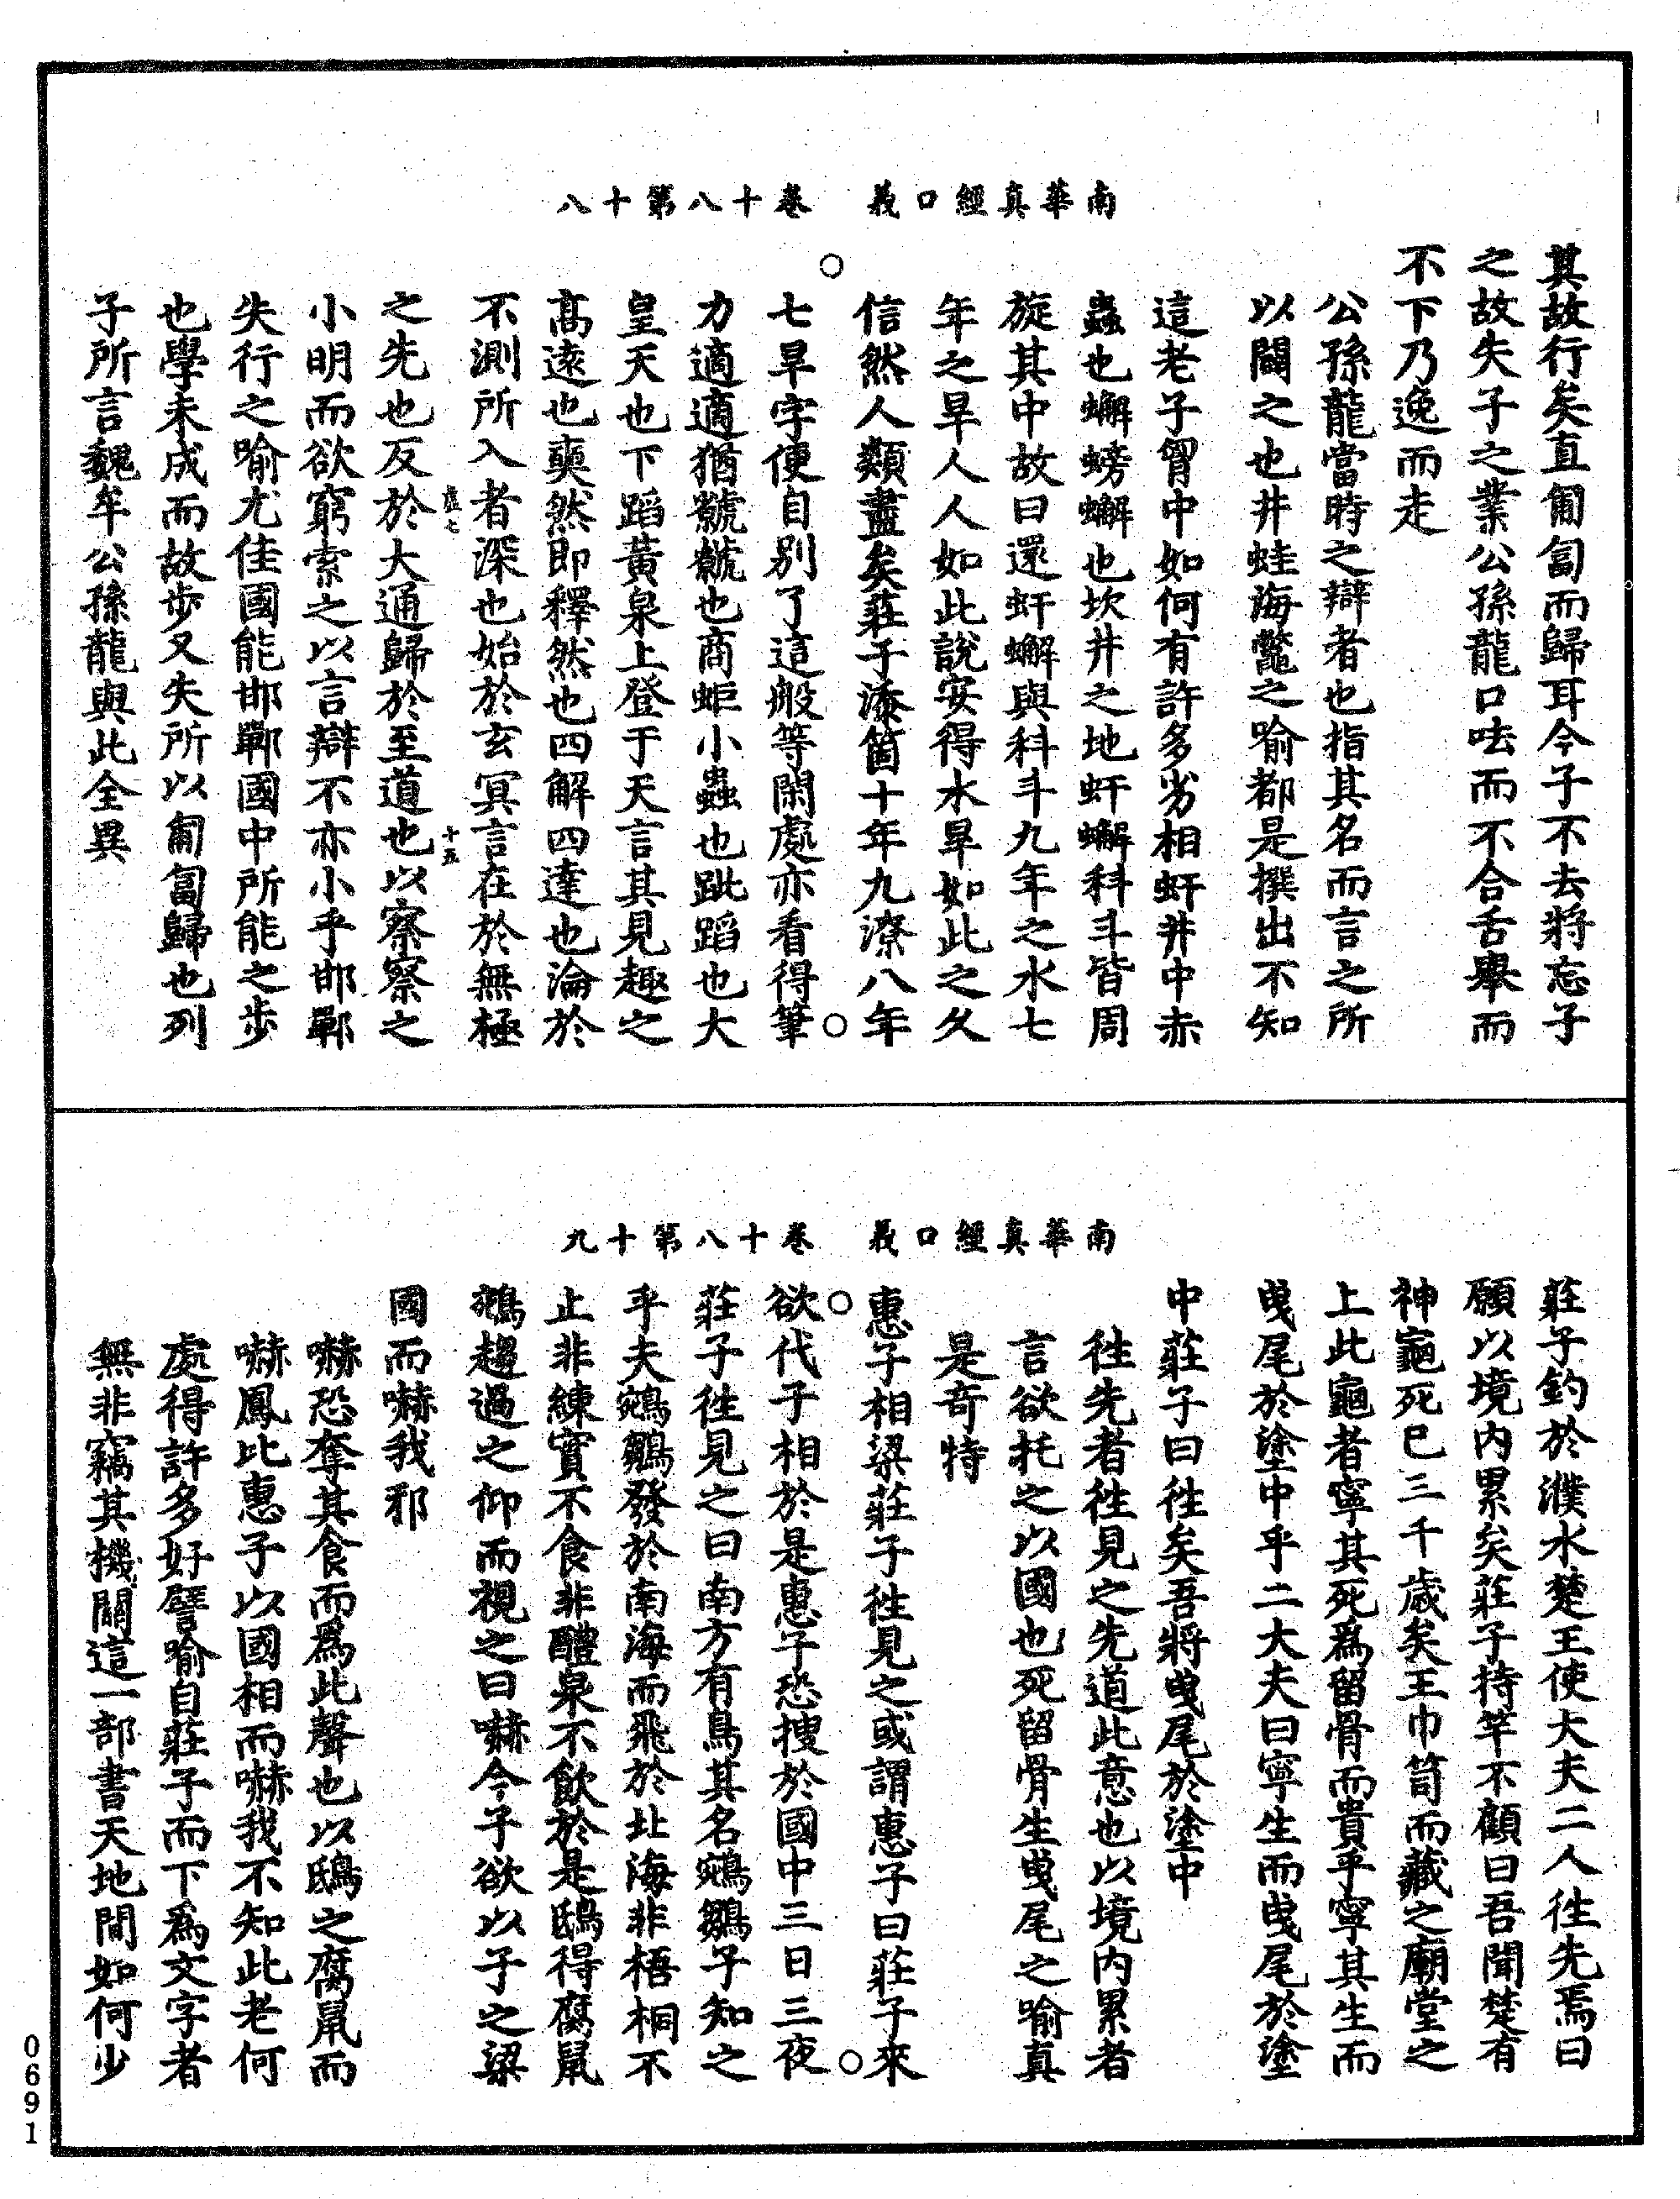 南華真經口義　卷十八第十八
其故行矣直匍匐而歸耳今子不去將忘子
之故失子之業公孫龍口呿而不合舌舉而
不下乃逸而走
公孫龍當時之辯者也指其名而言之所
以闢之也井蛙海鼈之喻都是撰出不知
這老子胷中如何有許多劣相虷井中赤
蟲也蠏螃蠏也坎井之地虷蠏科斗皆周
旋其中故曰還虷蠏與科斗九年之水七
年之旱人人如此說安得水旱如此之久
信然人類盡矣莊子添箇十年九潦八年
七旱字便自別了這般等閑處亦看得筆
力適適猶虩虩也商蚷小蟲也跐蹈也大
皇天也下蹈黃泉上登于天言其見趣之
高遠也奭然即釋然也四解四達也淪於
不測所入者深也始於玄冥言在於無極
之先也反於大通歸於至道也以察察之
虛七
十五
小明而欲窮索之以言辯不亦小乎邯鄲
失行之喻尤佳國能邯鄲國中所能之步
也學未成而故步又失所以匍匐歸也列
子所言魏牟公孫龍與此全異
南華真經口義　卷十八第十九
莊子釣於濮水楚王使大夫二人往先焉曰
願以境内累矣莊子持竿不顧曰吾聞楚有
神龜死已三千歲矣王巾笥而藏之廟堂之
上此龜者寧其死爲留骨而貴乎寧其生而
曳尾於塗中乎二大夫曰寧生而曳尾於塗
中莊子曰往矣吾將曳尾於塗中
往先者往見之先道此意也以境内累者
言欲托之以國也死留骨生曳尾之喻真
是奇特
惠子相梁莊子往見之或謂惠子曰莊子來
欲代子相於是惠子恐搜於國中三日三夜
莊子往見之曰南方有鳥其名鵷鶵子知之
乎夫鵷鶵發於南海而飛於北海非梧桐不
止非練實不食非醴泉不飲於是鴟得腐鼠
鵷趨過之仰而視之曰嚇今子欲以子之梁
國而嚇我邪
嚇恐奪其食而爲此聲也以鴟之腐鼠而
嚇鳳比惠子以國相而嚇我不知此老何
處得許多好譬喻自莊子而下爲文字者
無非竊其機關這一部書天地間如何少
0691